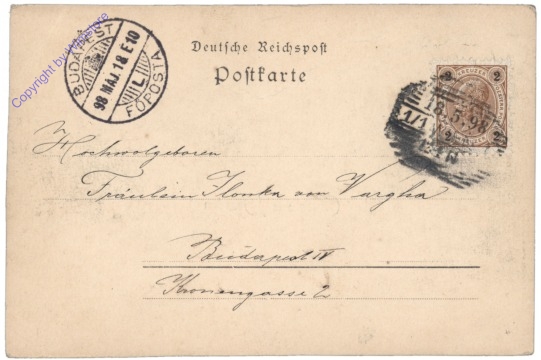 Copyright by
BUDAPEST
98 MAJ. 18 E 10
FŐPOSTA
Deutsche Reichspost
Postkarte
2 KREUZER 2
18.5.98
1/1
2 2
Hochwolgeboren
Fräulein Ilonka von Vargha
Budapest IV
Kronengasse 2